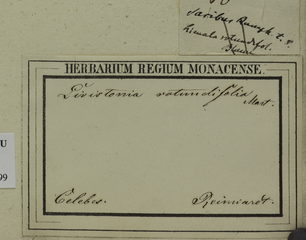 Saribus Rumph. t. 8
Livistona rotundifol.
HERBARIUM REGIUM MONACENSE.
Livistonia rotundifolia
Mart.
Celebes. Reinwardt.
U
99